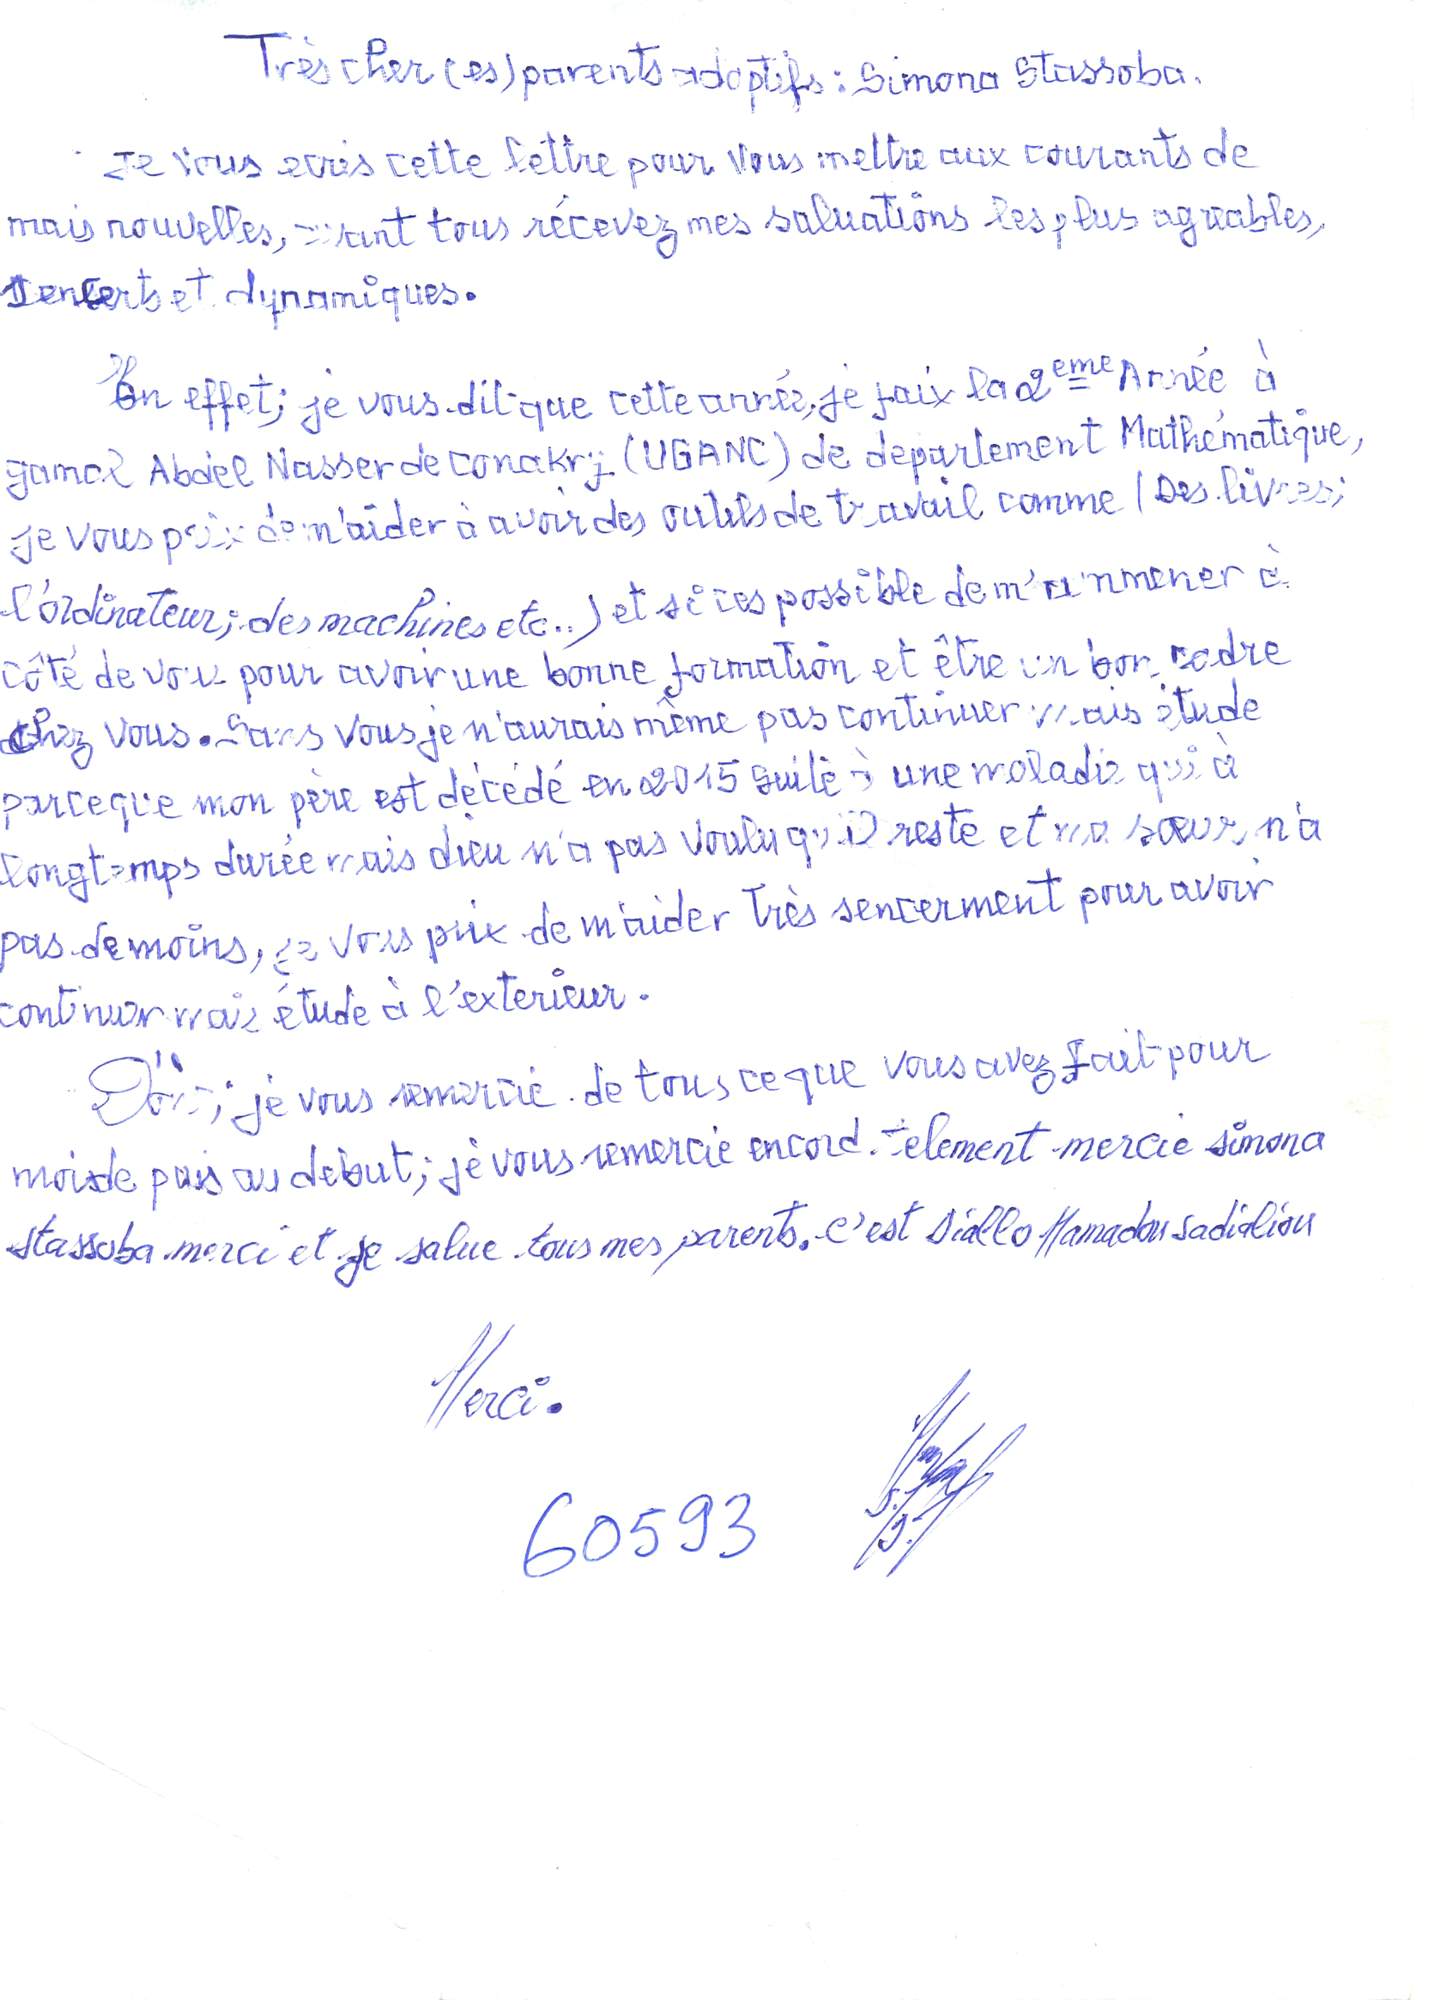 Très cher (es) parents adoptifs : Simona Stassoba.
Je vous ecris cette lettre pour vous mettre aux courants de
mais nouvelles, avant tous récevez mes saluations les plus agreables,
et dynamiques.
En effet; je vous dit que cette année, je faix la 2eme Année à
gamal Abdel Nasser de conakry (UGANC) de departement Mathématique,
je vous prix de m'aider à avoir des outils de travail comme (Des livres;
l'ordinateur; des machines etc..) et si ces possible de m'a'nmener à
côté de vous pour avoir une bonne formation et être un bon cadre
chez vous. Sans vous je n'aurais même pas continuer mais étude
parceque mon père est décédé en 2015 suite à une maladie qui à
longtemps durée mais dieu n'a pas voulu qu'il reste et ma sœur n'a
pas de moins, je vous prix de m'aider très sencerment pour avoir
continuer mais étude à l'exterieur.
je vous remercie de tous ce que vous avez fait pour
mois de puis au debut; je vous remercie encord telement mercie simona
stassoba merci et je salue tous mes parents. c'est Diallo Mamadou sadialiou
Merci.
60593